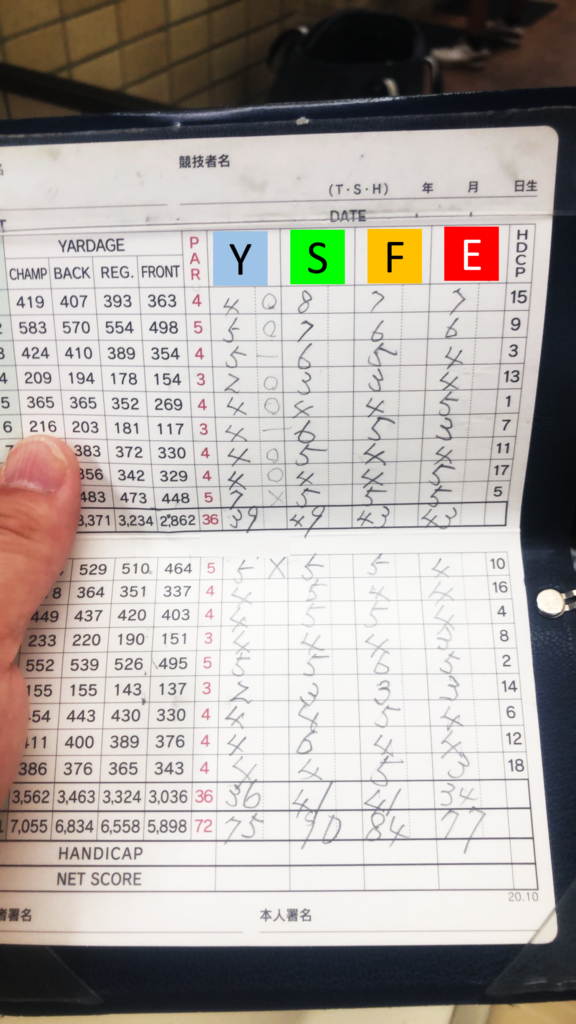 競技者名
(T・S・H) 年 月 日生
DATE
YARDAGE PAR Y S F E HDCP
CHAMP BACK REG. FRONT
419 407 393 363 4 4 ○ 8 7 7 15
583 570 554 498 5 5 ○ 7 6 6 9
3 424 410 389 354 4 5 - 6 5 4 3
4 209 194 178 154 3 2 ○ 3 3 4 13
5 365 365 352 269 4 4 ○ 4 4 5 1
6 216 203 181 117 3 4 - 6 5 3 7
383 372 330 4 4 ○ 5 4 4 11
356 342 329 4 4 ○ 4 4 5 17
483 473 448 5 7 × 5 5 5 5
3,371 3,234 2,862 36 39 49 43 43
529 510 464 5 5 × 5 5 4 10
364 351 337 4 4 5 4 4 16
449 437 420 403 4 4 5 5 4 4
233 220 190 151 3 4 4 4 3 8
552 539 526 495 5 5 5 6 5 2
155 155 143 137 3 2 3 3 3 14
443 430 330 4 4 4 5 4 6
400 389 376 4 4 6 4 4 12
386 376 365 343 4 4 4 5 3 18
3,562 3,463 3,324 3,036 36 36 41 41 34
7,055 6,834 6,558 5,898 72 75 90 84 77
HANDICAP
NET SCORE
20.10
者署名 本人署名